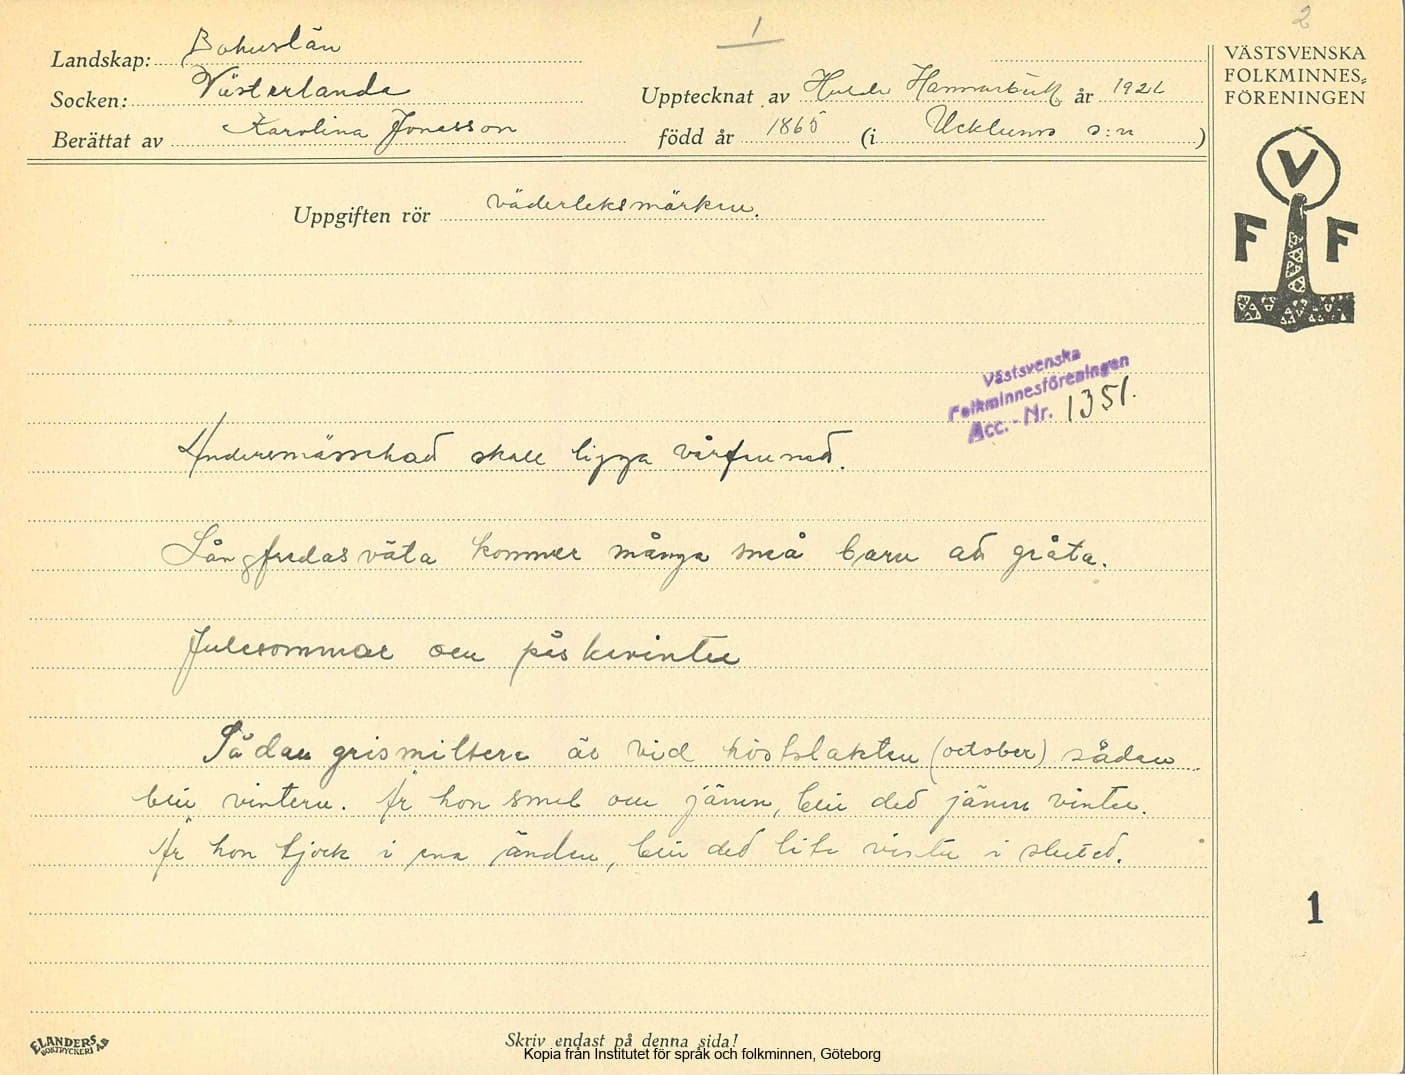 1
2
Landskap: Bohuslän
Socken: Västerlanda
Upptecknat av Hulda Hammarbäck år 1926
Berättat av Karolina Jonasson
född år 1865 (i Ucklums s:n )
VÄSTSVENSKA
FOLKMINNES=
FÖRENINGEN
V
F F
Uppgiften rör väderleksmärken.
Västsvenska
Folkminnesföreningen
Acc.-Nr. 1351.
Andersmässekad skall ligga vårfruned.
Långfredasväta kommer många små barn ad gråta.
Julesommar och påskevinter
Sådan grismilten är vid höstslakten (october) sådan
blir vintern. Är hon smal och jämn, blir ded jämn vinter.
Är hon tjock i ena änden, blir ded lite vinter i sluted.
1
ELANDERS
BOKTRYCKERI A.B
Skriv endast på denna sida!
Kopia från Institutet för språk och folkminnen, Göteborg